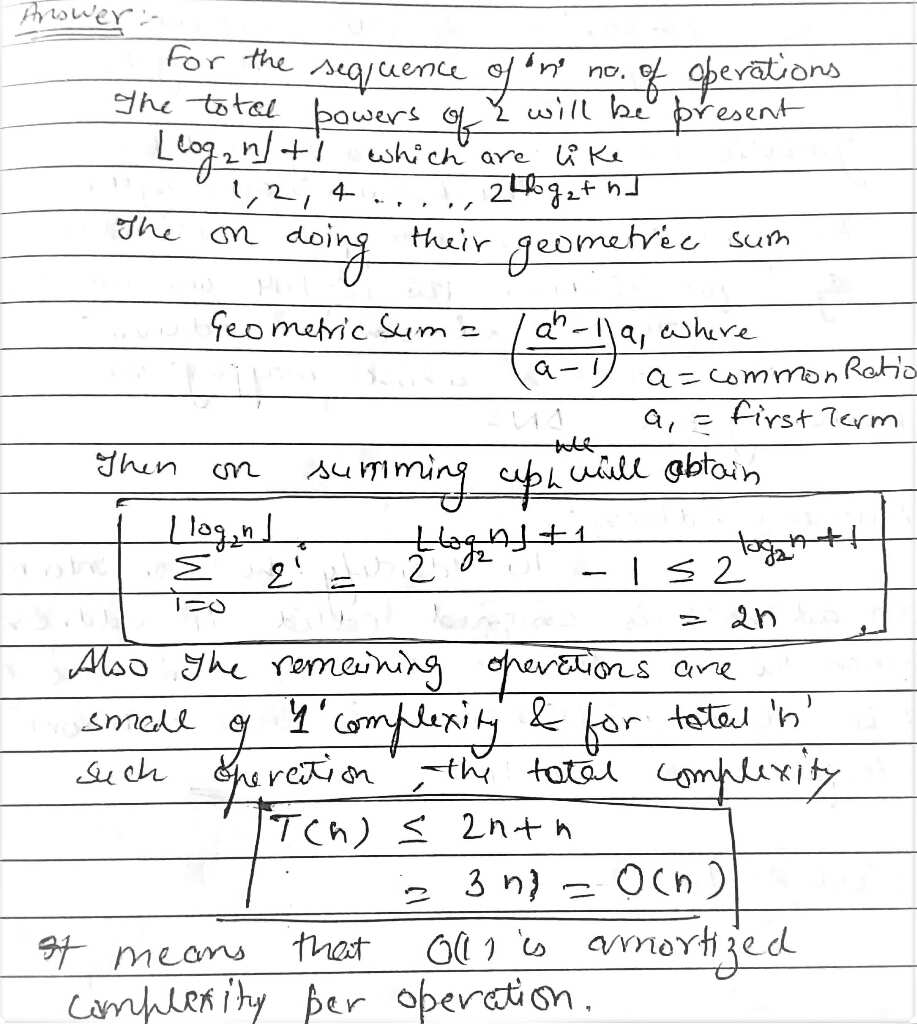 Answer :-
For the sequence of 'n' no. of operations
The total powers of 2 will be present
⌊log₂n⌋ + 1 which are like
1, 2, 4 . . . . ., 2^⌊log₂+n⌋
The on doing their geometric sum
Geometric Sum = (aⁿ-1 / a-1) a₁ where
a = common Ratio
a₁ = first Term
Then on summing up, we will obtain
⌊log₂n⌋ Σ i=0 2^i = 2^(⌊log₂n⌋+1) - 1 ≤ 2^(log₂n+1)
= 2n
Also The remaining operations are
small of '1' complexity & for total 'n'
such operation, the total complexity
T(n) ≤ 2n+n
= 3n} = O(n)
It means that O(1) is amortized
complexity per operation.